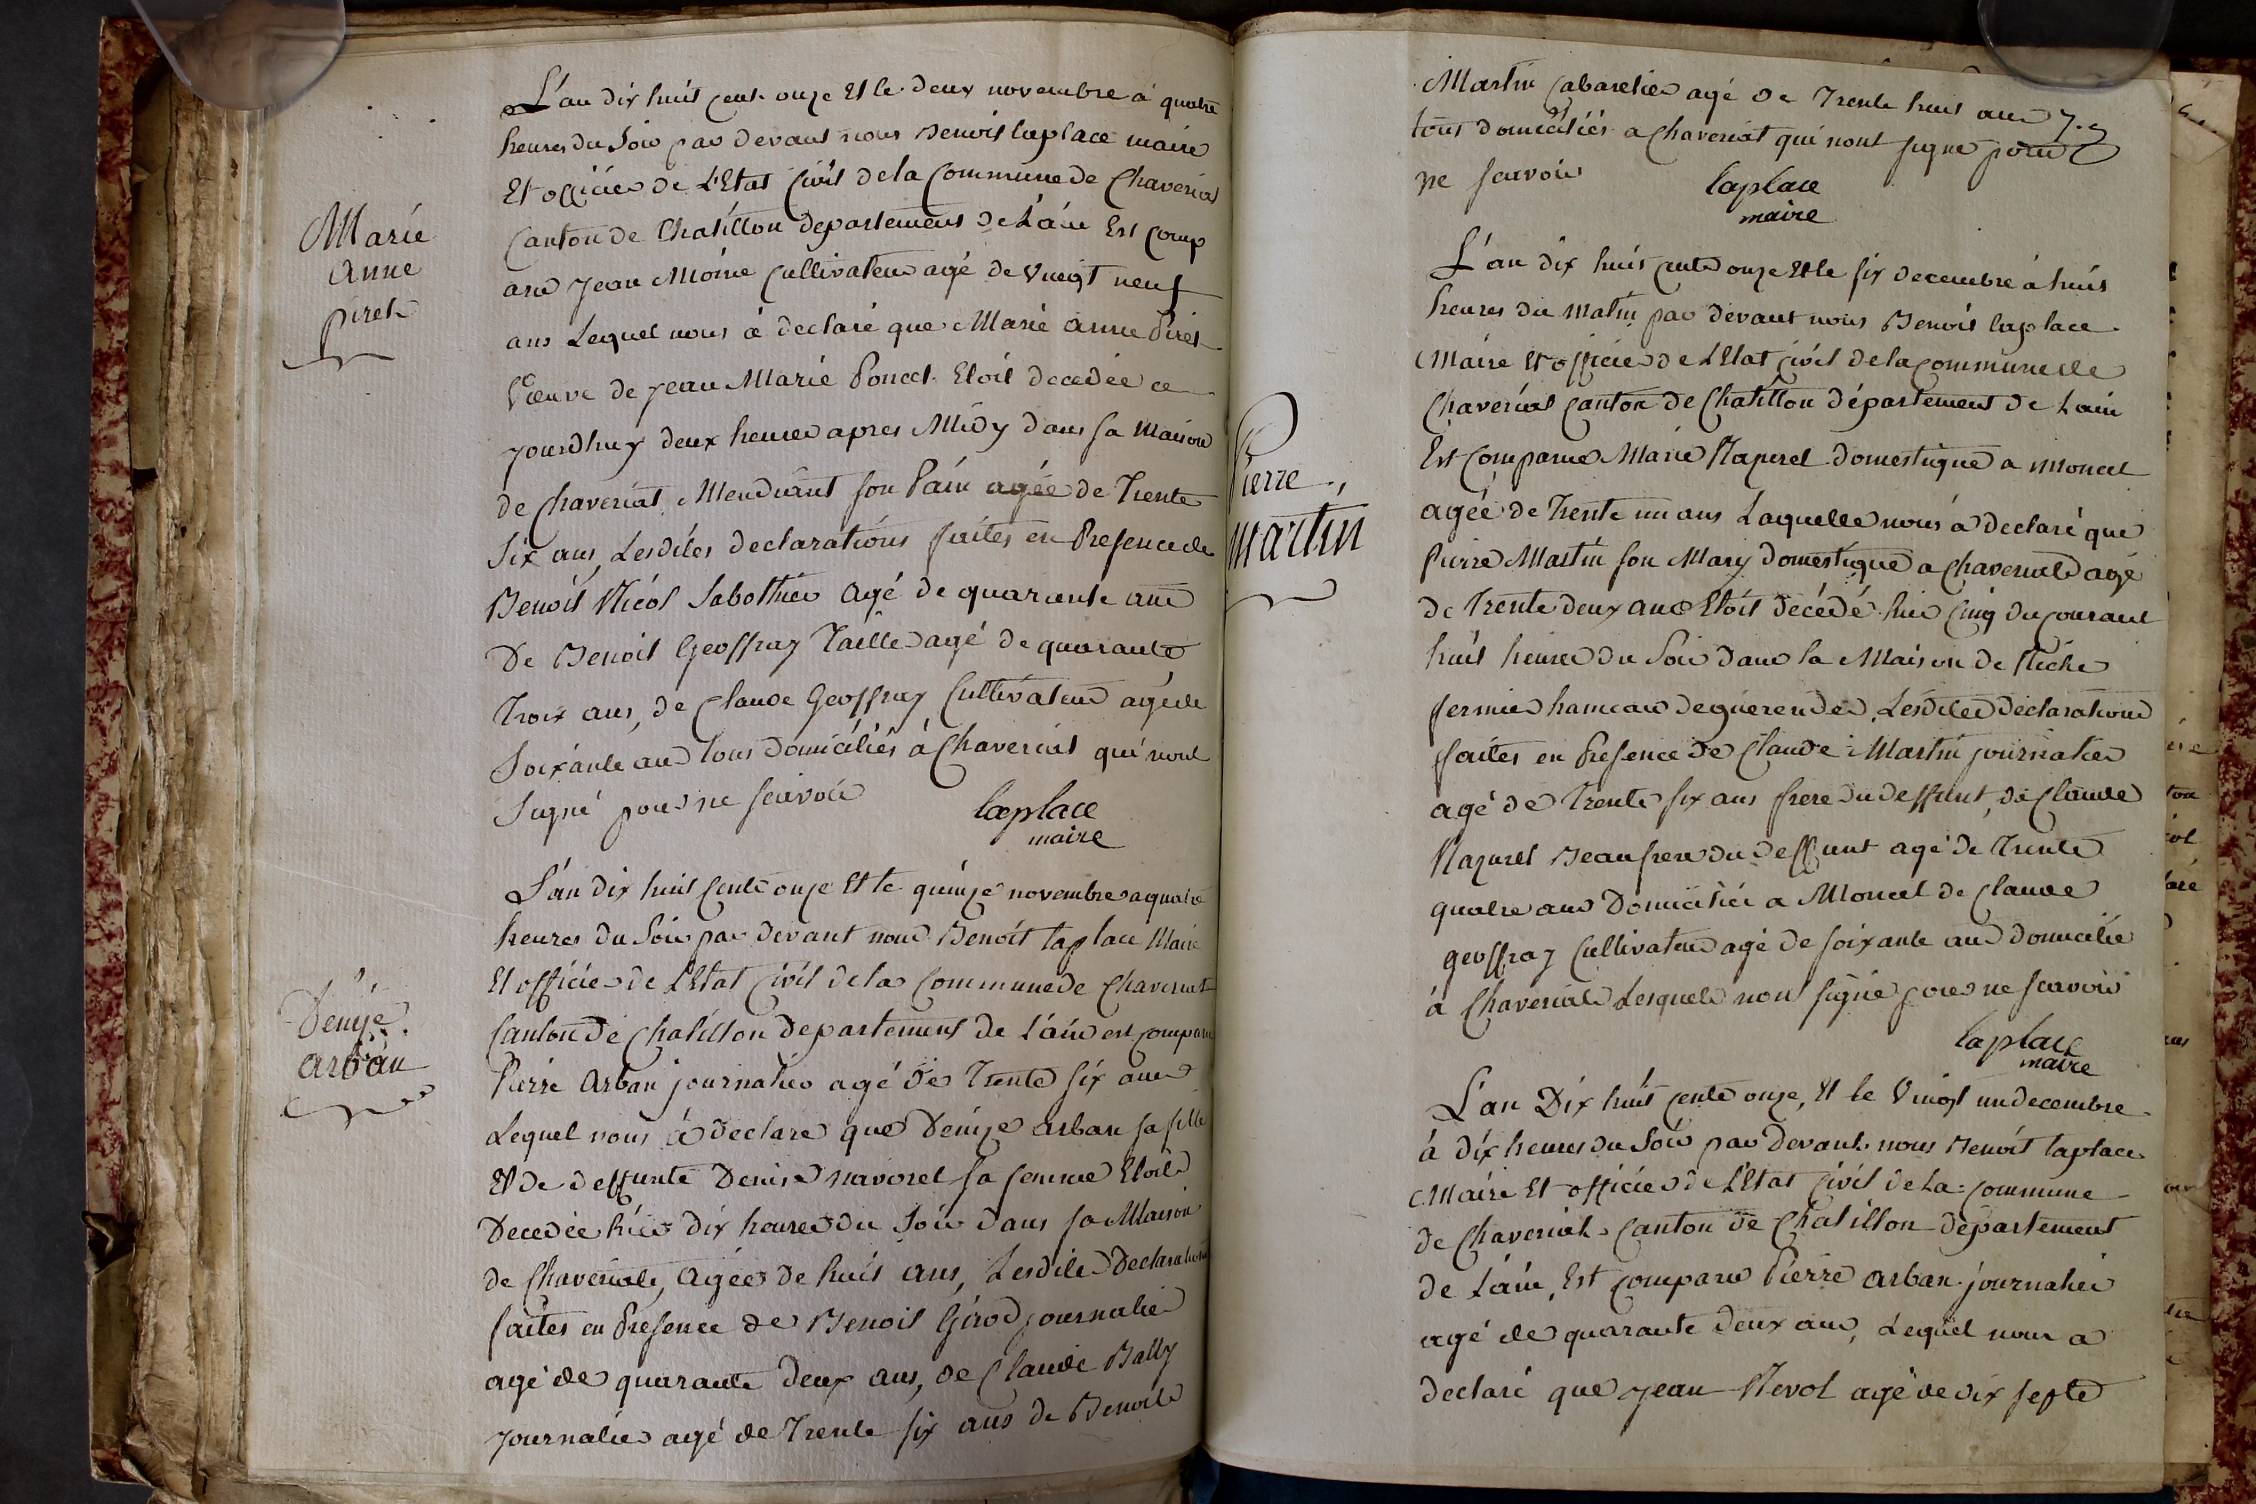 Marie
anne
piret
L'an dix huit cent onze Et le deux novembre a quatre
heures du Soir par devant nous Benoit laplace maire
Et officier de L'Etat Civil de la Commune de Chaveriat
Canton de Chatillon departement de L'ain Est Comp
aru jean Moine Cultivateur agé de Vingt neuf
ans Lequel nous à declaré que Marie anne Piret
Veuve de jean Marie Poncet Etoit decedée ce
jourdhuy deux heures apres Midy dans sa Maison
de Chaveriat Mendiant son Pain agée de Trente
Six ans, Lesdites declarations faites en Presence de
Benoit Nicol Sabothier agé de quarante ans
De Benoit Geoffray Taillieur agé de quarante
Trois ans, de Claude Geoffray Cultivateur agé de
Soixante ans tous domiciliés à Chaveriat qui n'ont
Signé pour ne scavoir
laplace
maire
Denize
arban
L'an dix huit Cents onze Et le quinze novembre a quatre
heures du Soir par devant nous Benoit laplace Maire
Et officier de L'Etat Civil de la Commune de Chaveriat
Canton de Chatillon departement de L'ain est comparu
Pierre arban journalier agé de Trente six ans
Lequel nous à declaré que Denize arban sa fille
Et de deffunte Denise navoret sa femme Etoit
Decedée hier dix heures du Soir dans sa Maison
de Chaveriat, agée de huit ans, Lesdites Declarations
faites en Presence de Benoit Girod journalier
agé de quarante deux ans, de Claude Bally
journalier agé de Trente six ans de Benoit
Martin Cabaretier agé de Trente huit ans
tous domiciliés a Chaveriat qui nont signé pour
ne scavoir
laplace
maire
Pierre
martin
L'an dix huit cents onze Et le six decembre à huit
heures du matin par devant nous Benoit laplace
Maire Et officier de L'Etat Civil de la commune de
Chaveriat Canton de Chatillon département de L'ain
Est Comparue Marie domestique a moncet
agée de Trente un ans Laquelle nous a declaré que
Pierre Martin son Mary domestique a Chaveriat agé
de Trente deux ans Etoit decédé hier Cinq du courant
huit heures du Soir dans la Maison de
fermier hameau de Lesdites déclarations
faites en Presence de Claude Martin journalier
agé de Trente six ans frere du deffunt, de Claude
Beaufrere du deffunt agé de Trente
quatre ans Domicilié a Moncet de Claude
geoffray Cultivateur agé de soixante ans domicilié
à Chaveriat Lesquels non signé pour ne scavoir
laplace
maire
L'an Dix huit cents onze, Et le Vingt un decembre
à dix heures du Soir par Devant nous Benoit laplace
Maire Et officier de L'Etat Civil de La commune
de Chaveriat Canton de Chatillon département
de L'ain, Est comparu Pierre arban journalier
agé de quarante deux ans, Lequel nous a
declaré que jean Nevol agé de dix septe